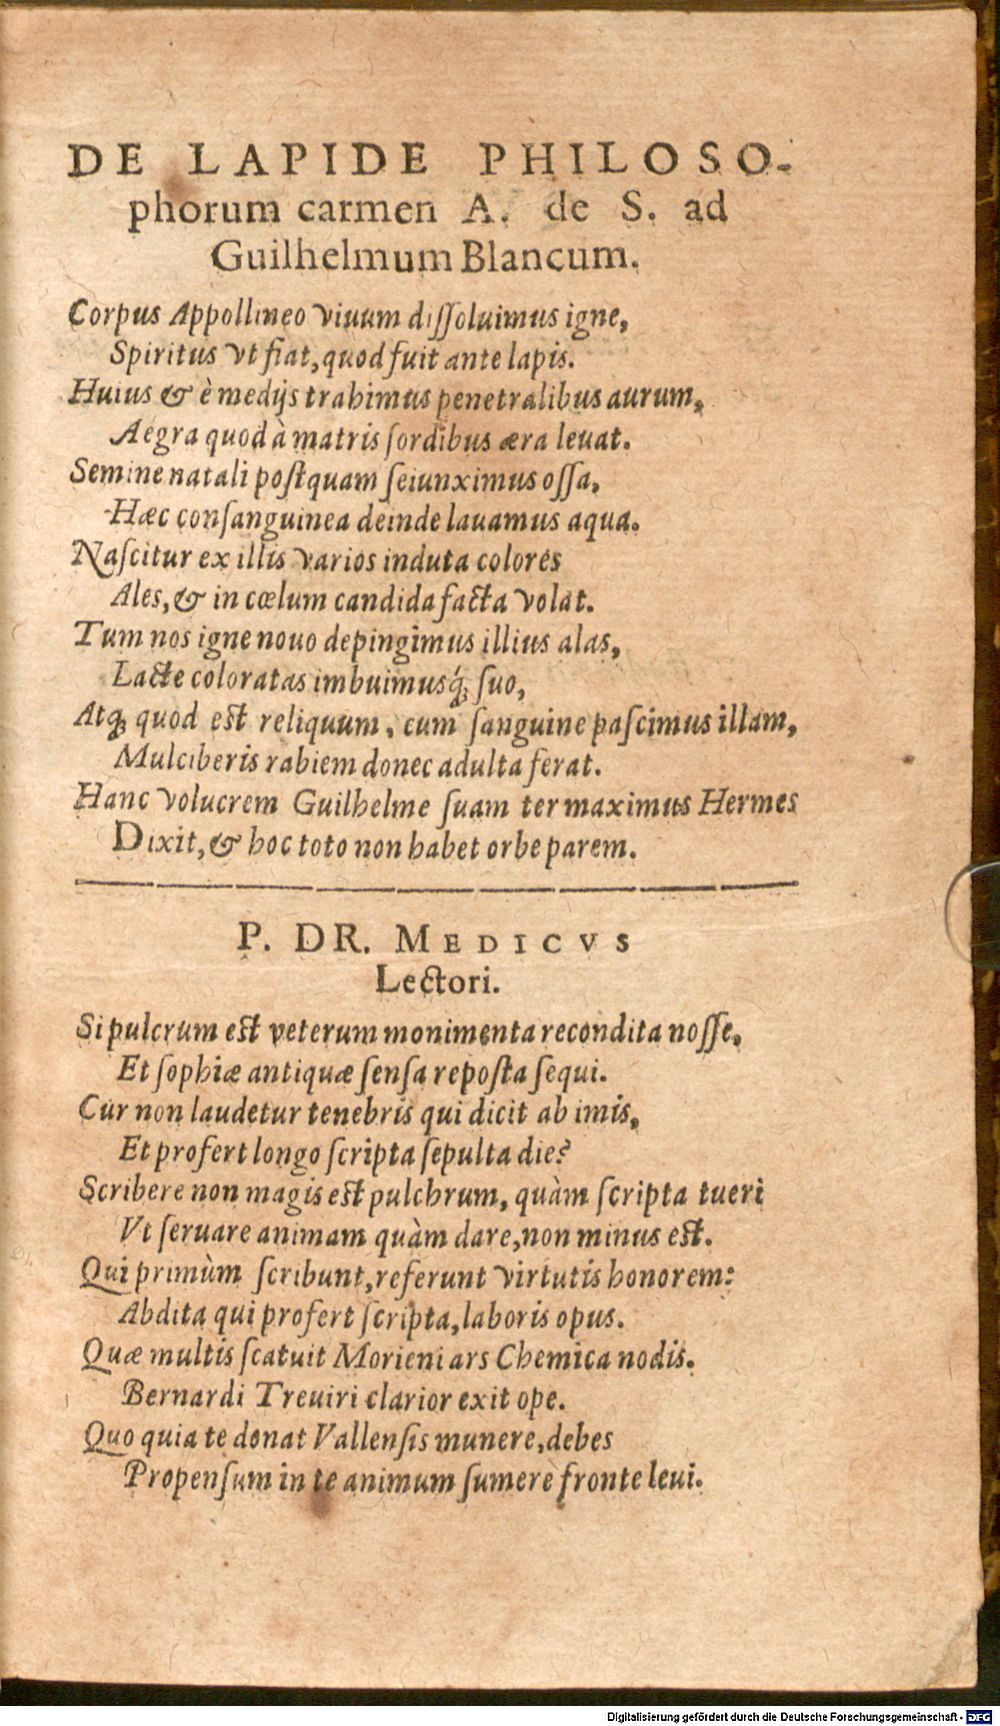 DE LAPIDE PHILOSO-
phorum carmen A. de S. ad
Guilhelmum Blancum.
Corpus Appollineo viuum diſſoluimus igne,
Spiritus vt fiat, quod fuit ante lapis.
Huius & è medijs trahimus penetralibus aurum,
Aegra quod à matris ſordibus æra leuat.
Semine natali poſtquam ſeiunximus oſſa,
Hæc conſanguinea deinde lauamus aqua.
Naſcitur ex illis varios induta colores
Ales, & in cœlum candida facta volat.
Tum nos igne nouo depingimus illius alas,
Lacte coloratas imbuimusq́ꝫ ſuo,
Atqꝫ quod est reliquum, cum ſanguine paſcimus illam,
Mulciberis rabiem donec adulta ferat.
Hanc volucrem Guilhelme ſuam ter maximus Hermes
Dixit, & hoc toto non habet orbe parem.
P. DR. MEDICVS
Lectori.
Si pulcrum est veterum monimenta recondita noſſe,
Et ſophiæ antiquæ ſenſa repoſta ſequi.
Cur non laudetur tenebris qui dicit ab imis,
Et profert longo ſcripta ſepulta die?
Scribere non magis est pulchrum, quàm ſcripta tueri
Vt ſeruare animam quàm dare, non minus est.
Qui primùm ſcribunt, referunt virtutis honorem:
Abdita qui profert ſcripta, laboris opus.
Quæ multis ſcatuit Morieni ars Chemica nodis.
Bernardi Treuiri clarior exit ope.
Quo quia te donat Vallenſis munere, debes
Propenſum in te animum ſumere fronte leui.
Digitalisierung gefördert durch die Deutsche Forschungsgemeinschaft - DFG